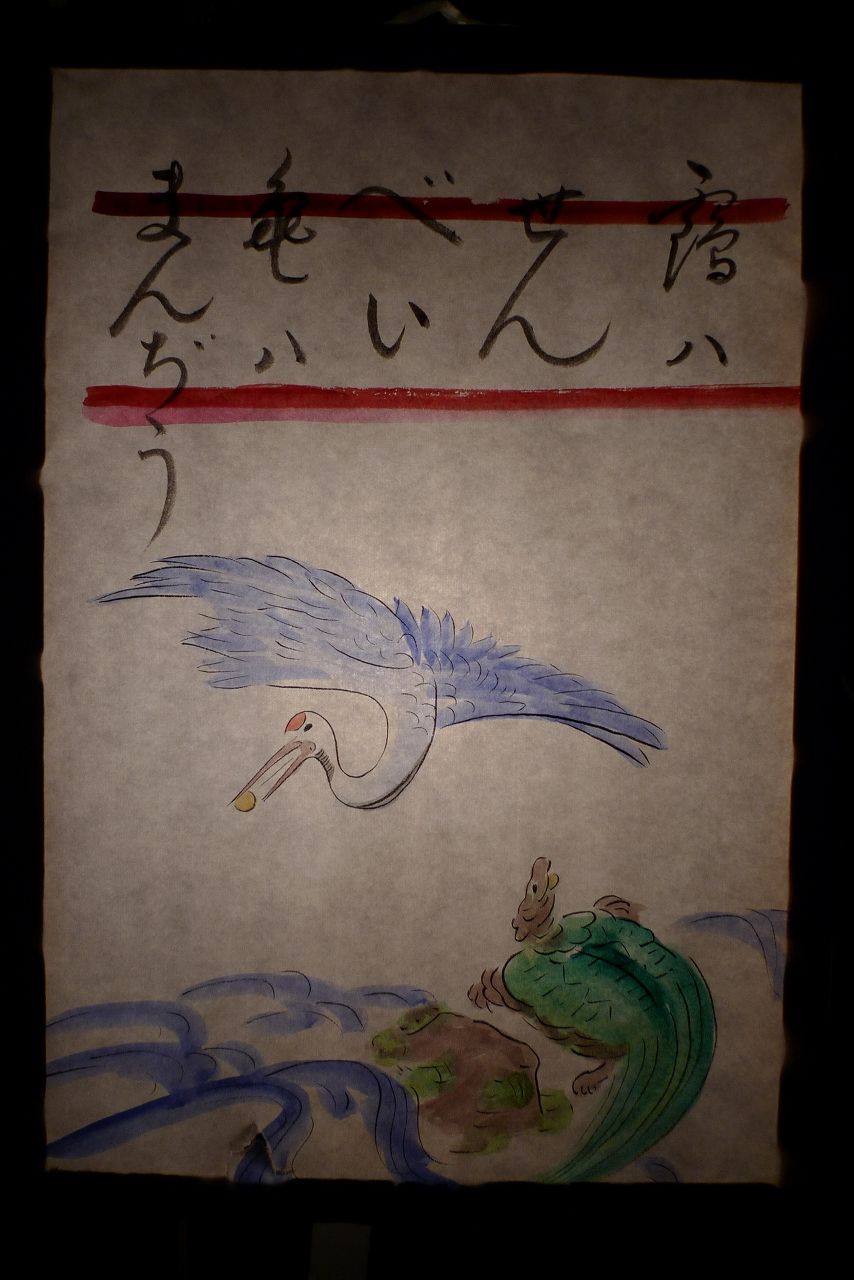 鶴ハ
せん
べい
亀ハ
まんぢう